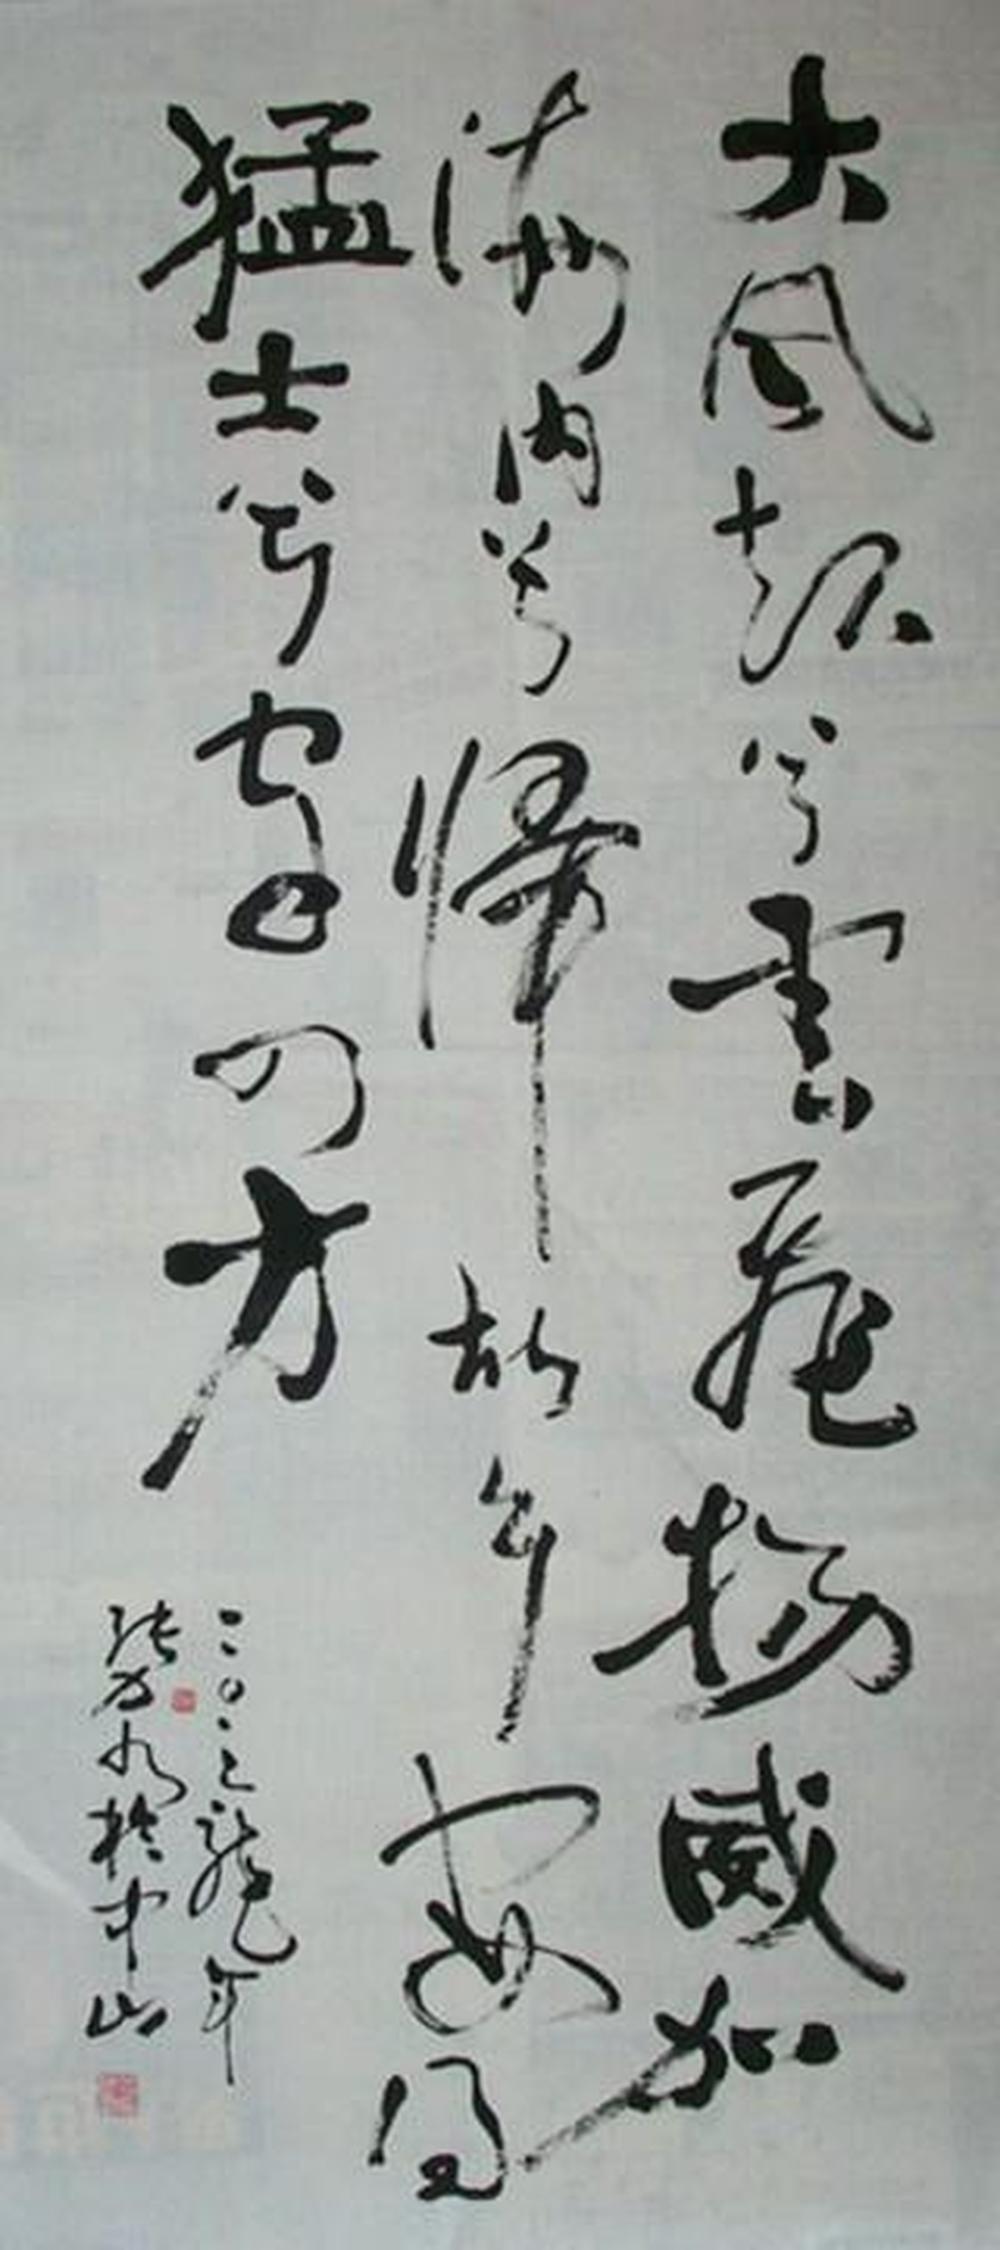 大风起兮雲飛揚威加
海内兮歸故乡安得
猛士兮守四方
二〇一二龍年
張 於中山